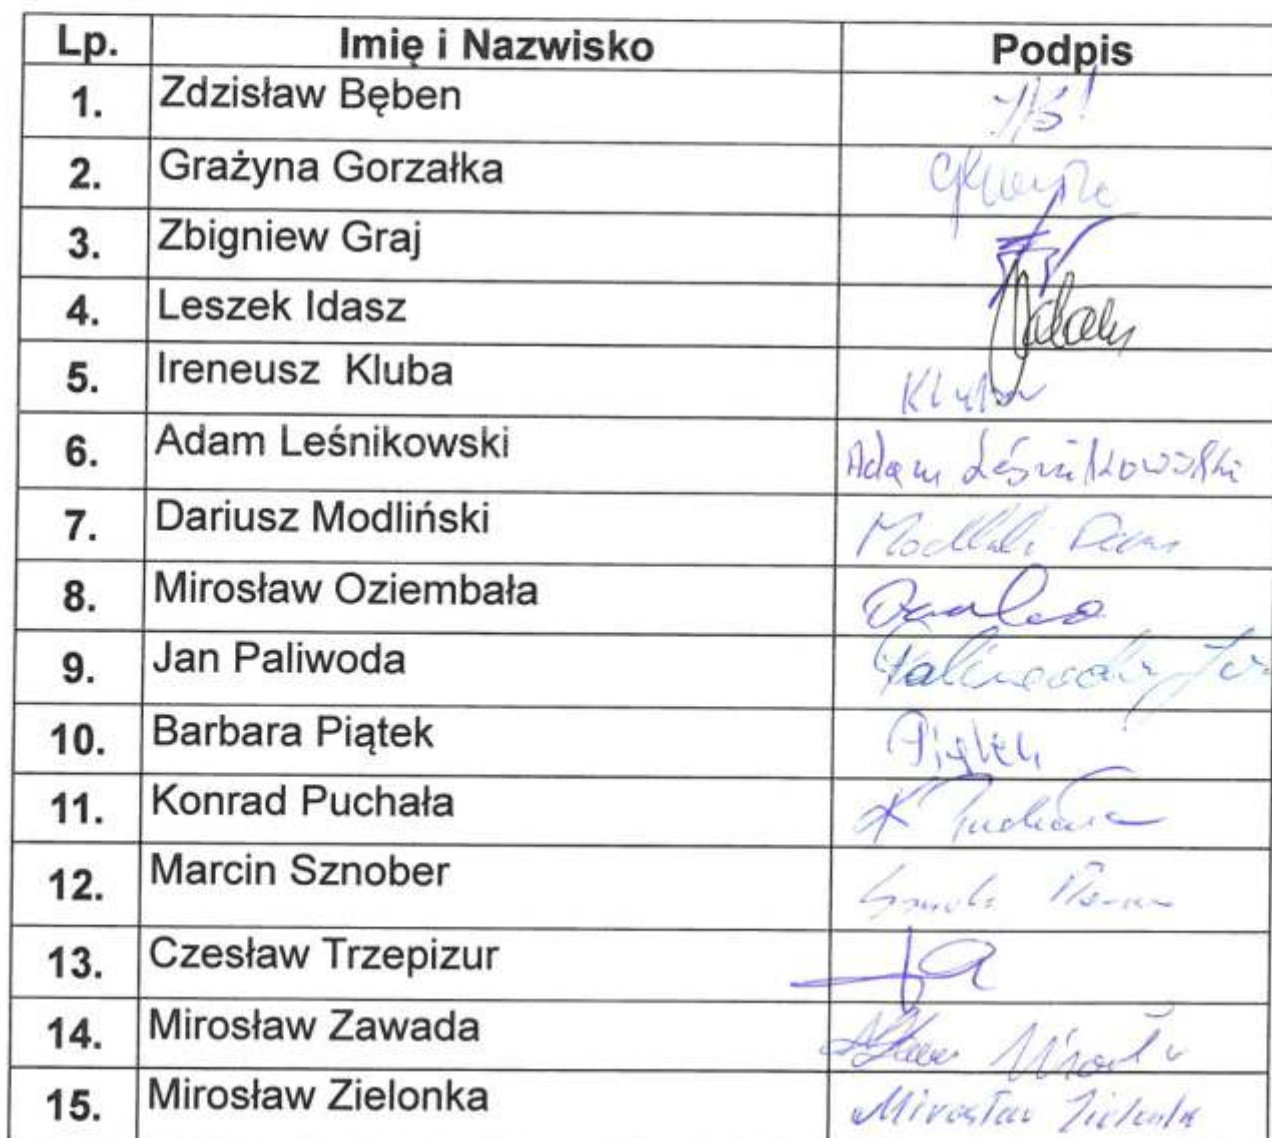 Lp. Imię i Nazwisko Podpis
1. Zdzisław Bęben
2. Grażyna Gorzałka
3. Zbigniew Graj
4. Leszek Idasz
5. Ireneusz Kluba Kluba
6. Adam Leśnikowski Adam Leśnikowski
7. Dariusz Modliński
8. Mirosław Oziembała
9. Jan Paliwoda Paliwoda Jan
10. Barbara Piątek Piątek
11. Konrad Puchała K Puchała
12. Marcin Sznober
13. Czesław Trzepizur
14. Mirosław Zawada
15. Mirosław Zielonka Mirosław Zielonka